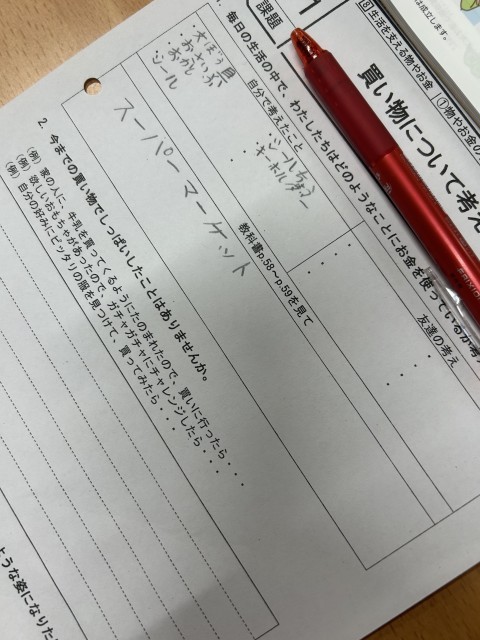 は成立します。
８ 生活を支える物やお金
① 物やお金の
課題
買い物について考え
1. 毎日の生活の中で、わたしたちはどのようなことにお金を使っているか考
自分で考えたこと
友達の考え
・シール
・シールちょう
・キーホルダー
教科書p.58~p.59を見て
スーパーマーケット
2. 今までの買い物でしっぱいしたことはありませんか。
(例) 家の人に、牛乳を買ってくるようにたのまれたので、買いに行ったら・・・
(例) 欲しいおもちゃがあったので、ガチャガチャにチャレンジしたら・・・
(例) 自分の好みにピッタリの服を見つけて、買ってみたら・・・
ような姿になりた